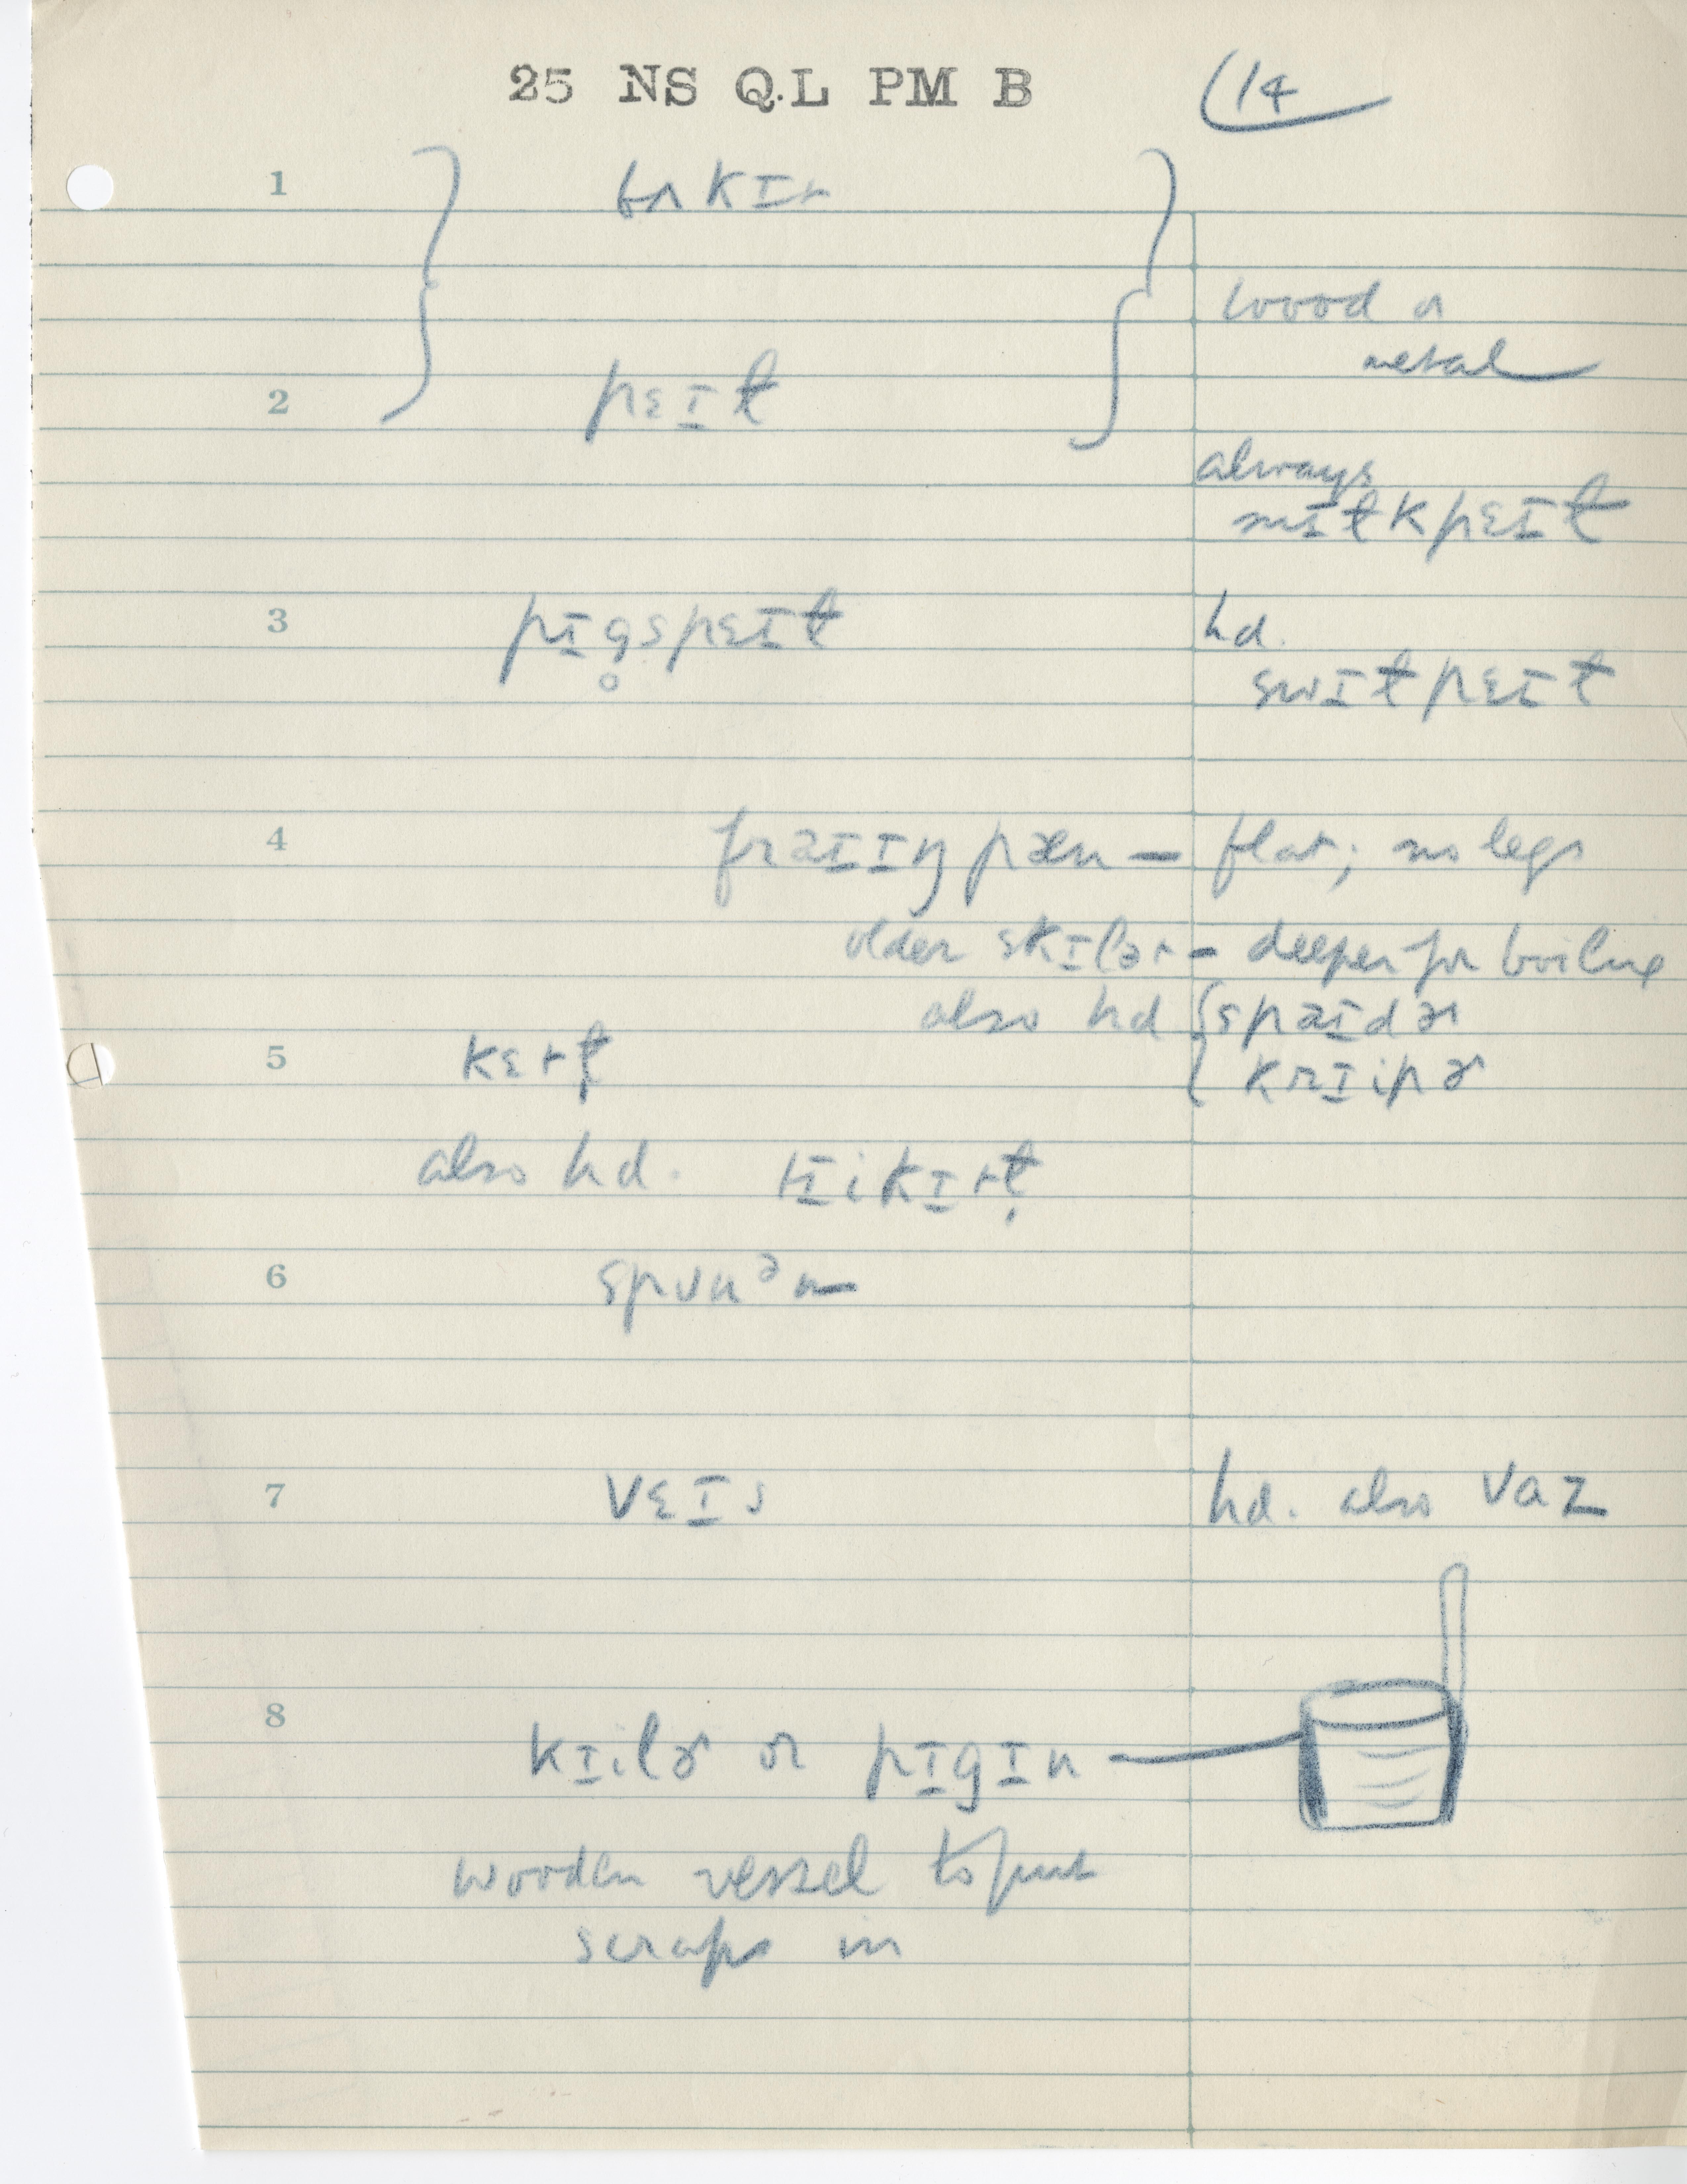 25 NS Q.L PM B (14
1 bʌkɪt
wood or
metal
2 pɛɪt
always
mɪtkpɛɪt
3 pɪg̥spɛɪt hd.
swɪtpɛɪt
4 fraɪɪŋ pæn — flat; no legs
older skɪlət - deeper for boiling
also hd { spaɪdɚ
5 kɛtt̬ krɪipɚ
also hd. tɪikɪtt̬
6 spuuᵊn
7 vɛɪs hd. also vaz
8 kɪilɚ or pɪgɪn
wooden vessel to put
scraps in